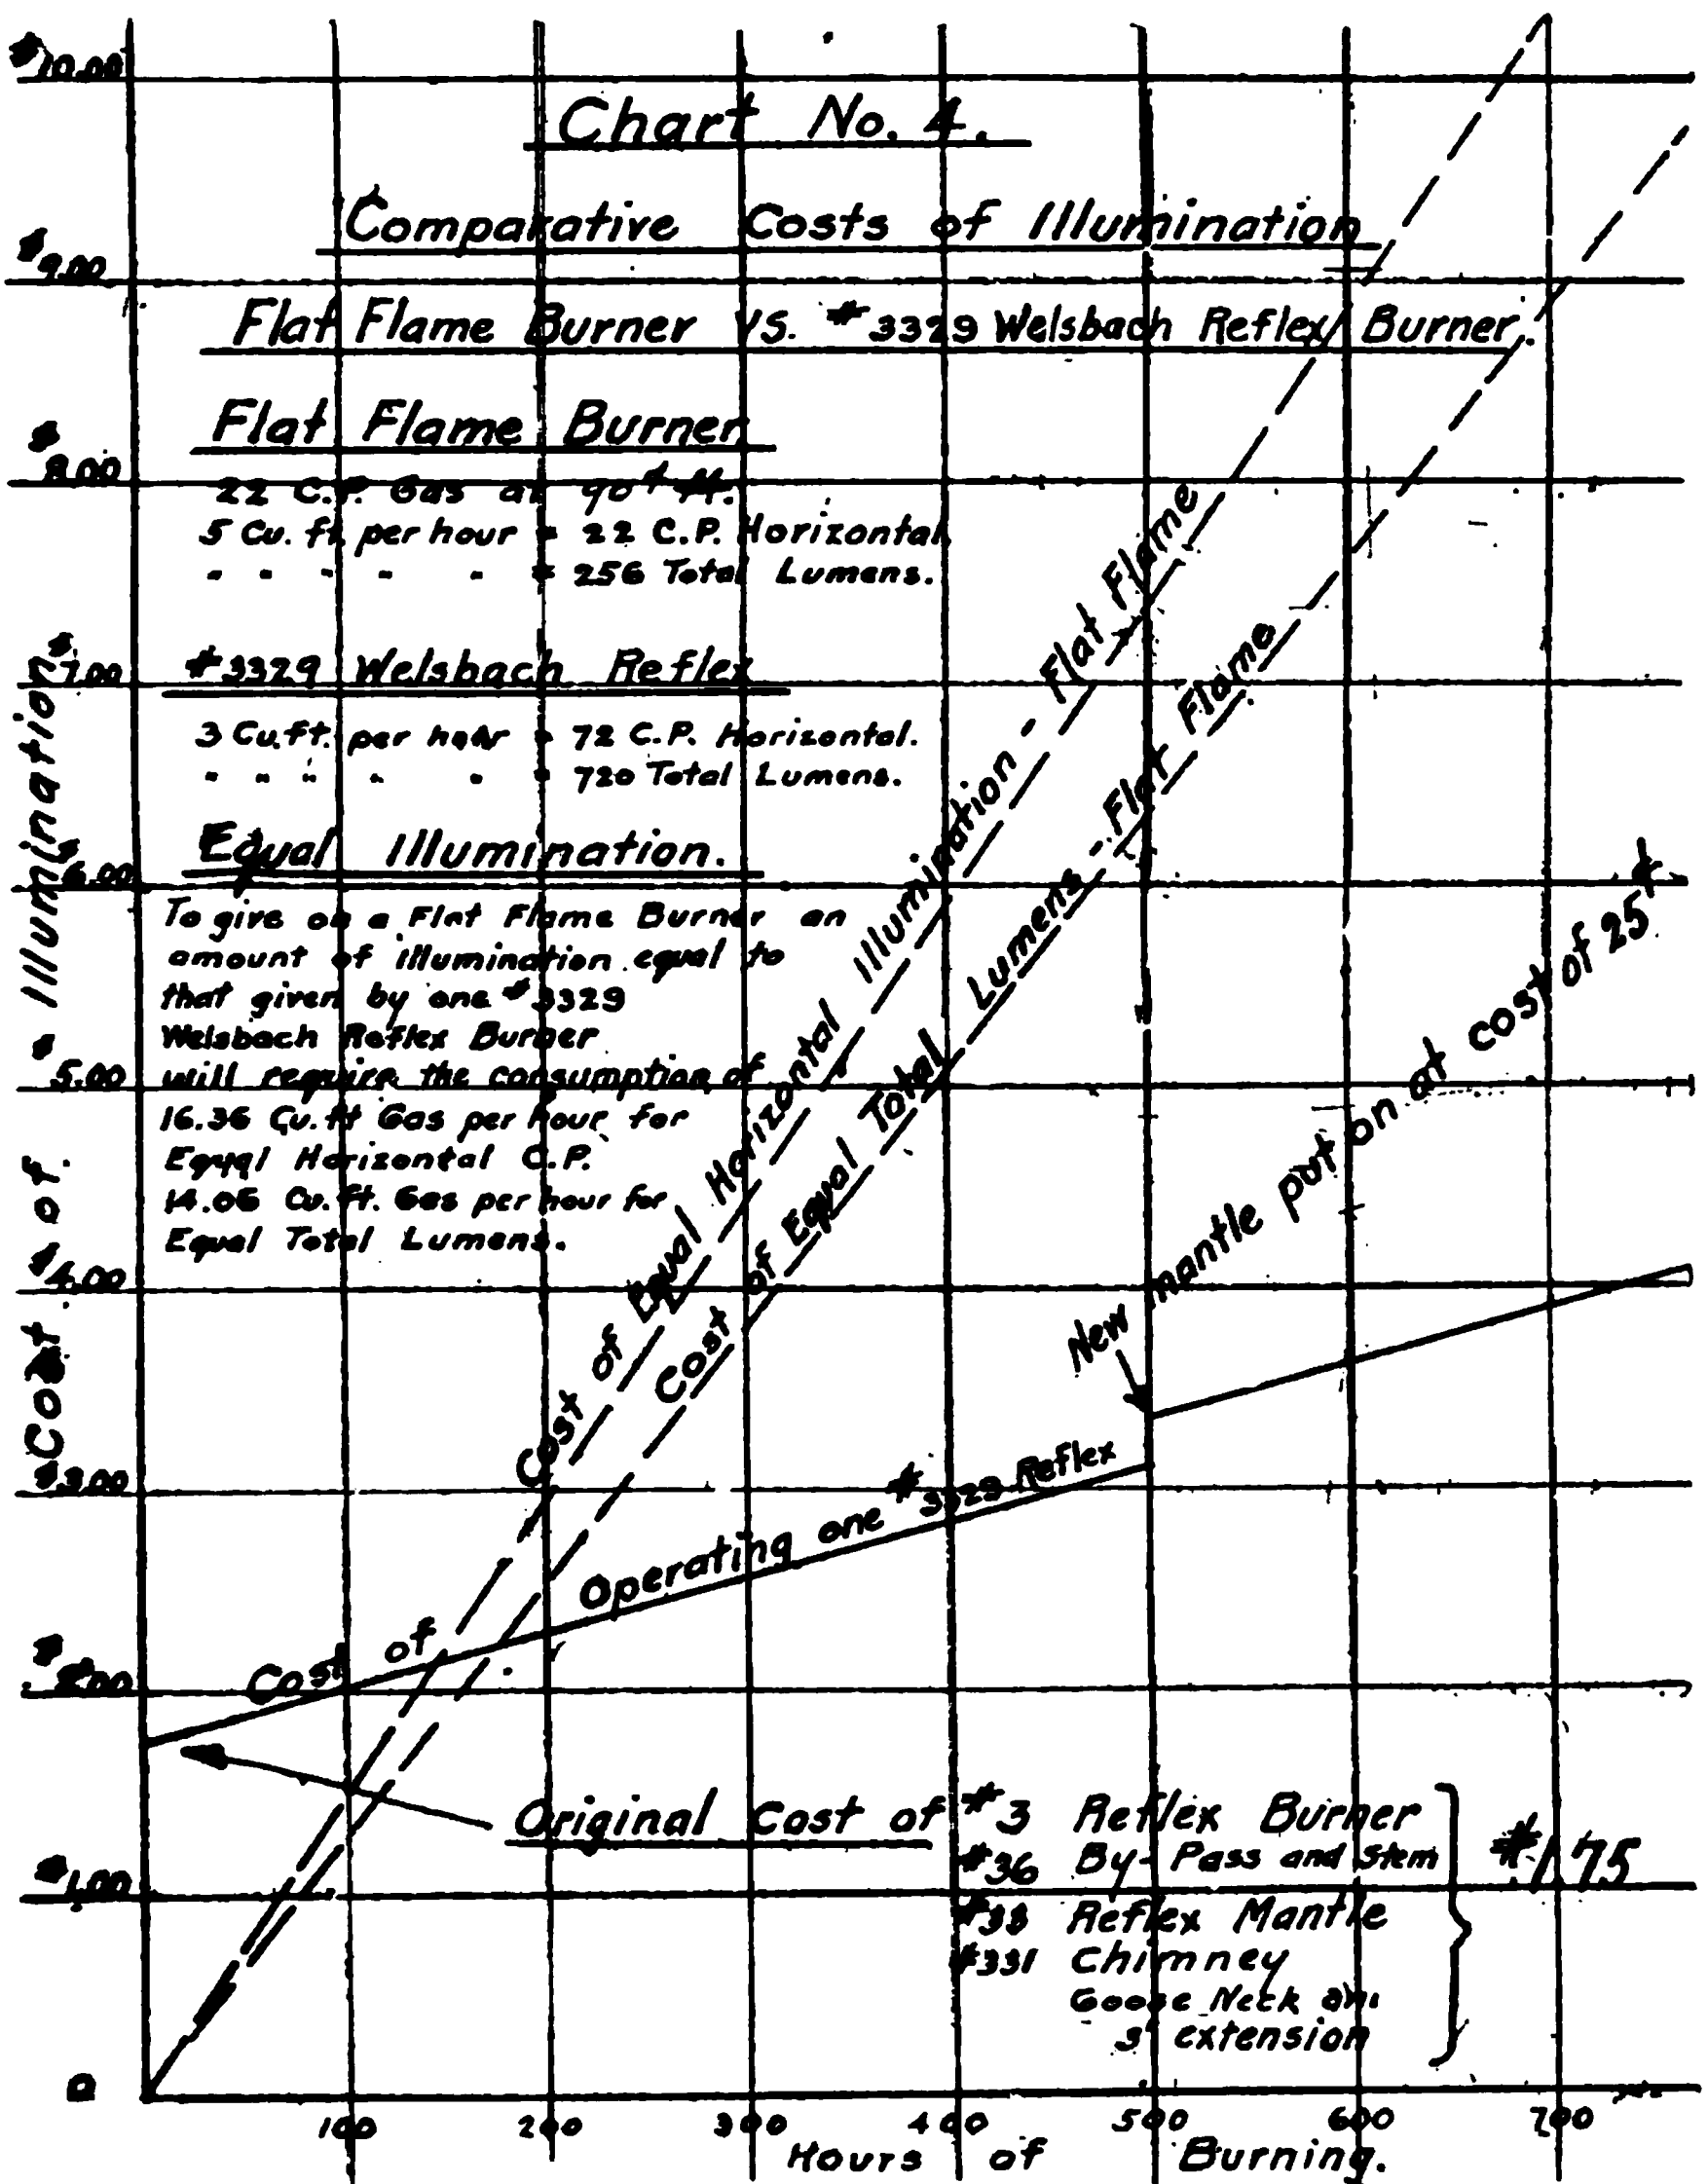 Chart No. 4.
Comparative Costs of Illumination
Flat Flame Burner VS. #3329 Welsbach Reflex Burner.
Flat Flame Burner
22 C.P. Gas at 90¢ M.
5 Cu. ft. per hour = 22 C.P. Horizontal
" " " " " = 256 Total Lumens.
#3329 Welsbach Reflex
3 Cu. ft. per hour = 72 C.P. Horizontal.
" " " " " = 720 Total Lumens.
Equal Illumination.
To give on a Flat Flame Burner an
amount of illumination equal to
that given by one #3329
Welsbach Reflex Burner
will require the consumption of
16.36 Cu. ft Gas per hour for
Equal Horizontal C.P.
14.06 Cu. ft. Gas per hour for
Equal Total Lumens.
Cost of Equal Horizontal Illumination - Flat Flame
Cost of Equal Total Lumens - Flat Flame
New mantle put on at cost of 25¢
Cost of Operating one #3329 Reflex
Original Cost of #3 Reflex Burner
#36 By-Pass and Stem
#33 Reflex Mantle
#331 Chimney
Goose Neck
3" extension
$1.75
Cost of Illumination
$10.00
$9.00
$8.00
$7.00
$6.00
$5.00
$4.00
$3.00
$2.00
$1.00
0
100 200 300 400 500 600 700
Hours of Burning.